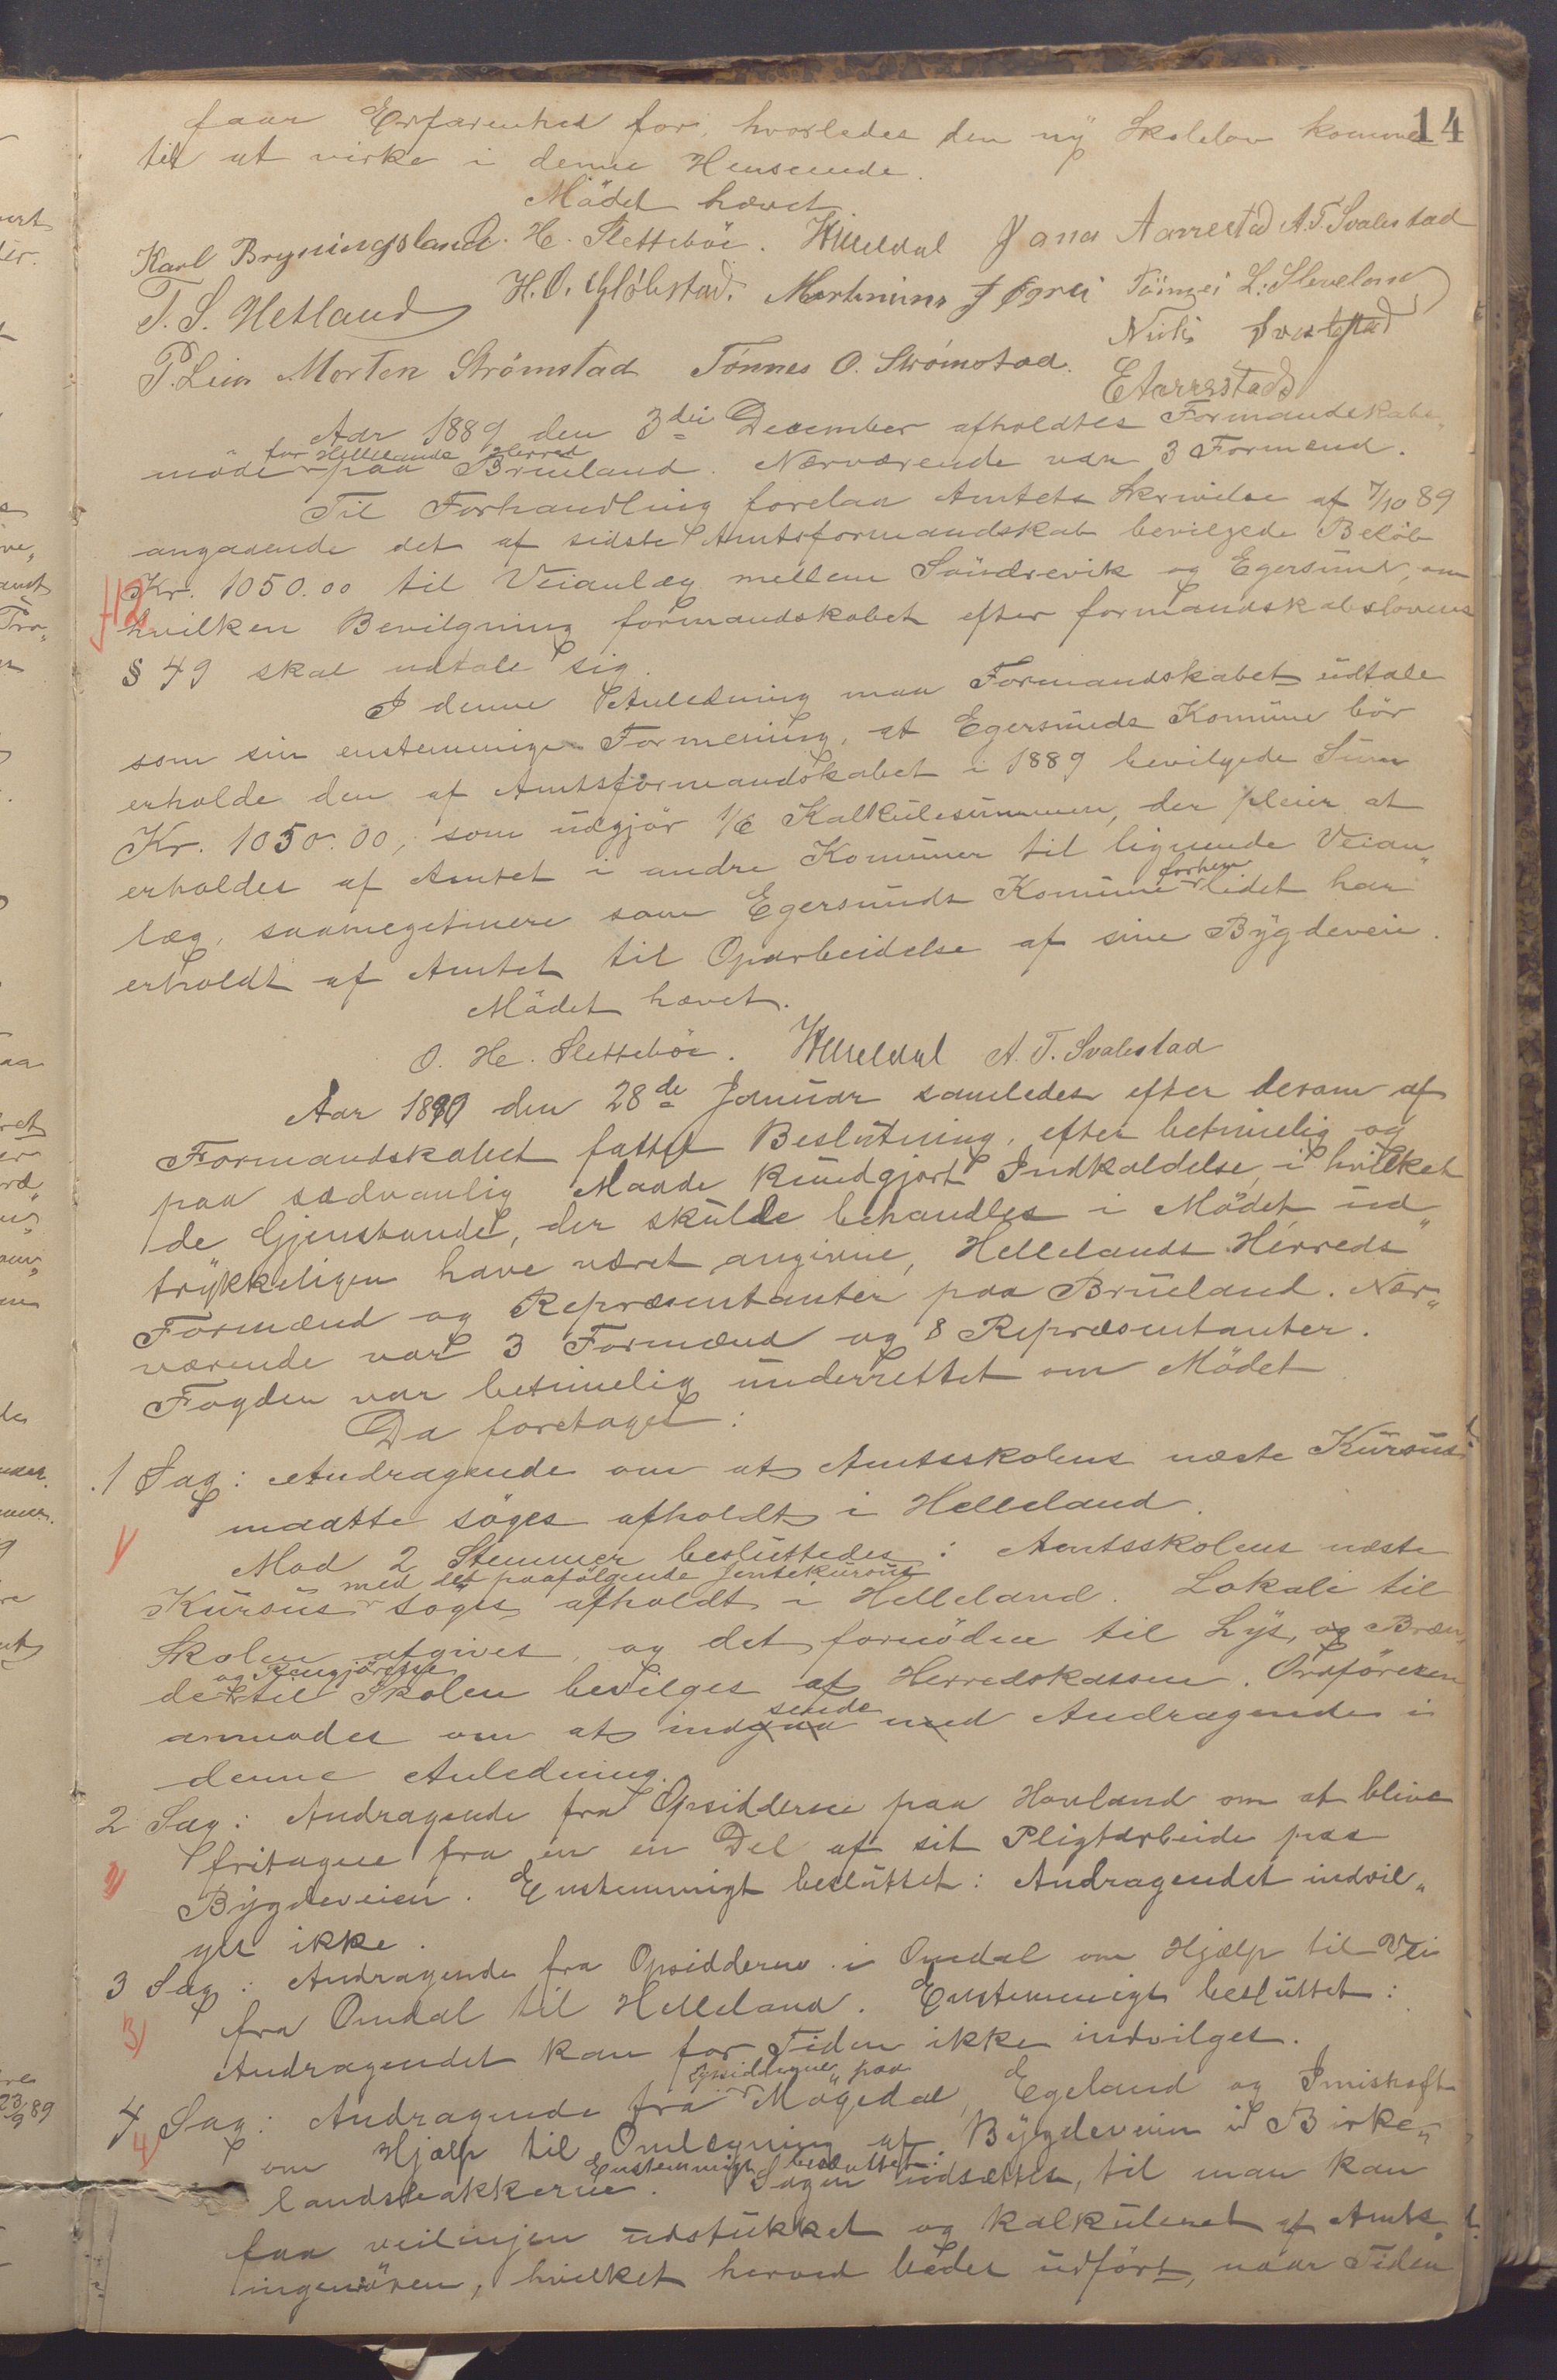 14
faar Erfarenhed for, hvorledes den ny Skolelov kommer
til at virke i denne Henseende.
Mödet hævet
Karl Bryningsland. O. He. Sletteböe. Jonas Aarrestad A. T. Svalestad
T. S. Hetland H. O. Gjöbstad. Martinius Tönnes L: Sleveland
P. Lein Morten Strømstad Tønnes O. Strömstad. Svalestad
E Aarrestad
Aar 1889 den 3die December afholdtes Formandskabs„
möde for Hellelands Herred paa Brueland. Nærværende var 3 Formænd.
Til Forhandling forelaa Amtets Skrivelse af 7/10 89
angaaende det af sidste Amtsformandskab bevilgede Belöb
Kr. 1050.00 til Veianlæg mellem Söndrevik og Egersund, om
hvilken Bevilgning formandskabet efter formandskabslovens
§ 49 skal udtale sig.
I denne Anledning maa Formandskabet udtale
som sin enstemmige Formening, at Egersunds Komune bör
erholde den af Amtsformandskabet i 1889 bevilgede Sum
Kr. 1050.00, som udgjör 1/6 Kalkulesummen, der pleier at
erholdes af Amtet i andre Komuner til lignende Veian„
læg, saameget mere som Egersunds Komune forhen lidet har
erholdt af Amtet til Oparbeidelse af sine Bygdeveie.
Mödet hævet.
O. He. Sletteböe. A. T. Svalestad
Aar 1890 den 28de Januar samledes efter derom af
Formandskabet fattet Beslutning, efter betimelig og
paa sædvanlig Maade kundgjort Indkaldelse, i hvilket
de Gjenstande, der skulde behandles i Mödet ud„
trykkeligen have været angivne, Hellelands Herreds
Formænd og Repræsentanter paa Brueland. Nær„
værende var 3 Formænd og 8 Repræsentanter.
Fogden var betimelig underrettet om Mödet
Da foretoges:
1 Sag: Andragende om at Amtsskolens næste Kursus
maatte söges afholdt i Helleland.
1/ Mod 2 Stemmer besluttedes: Amtsskolens næste
Kursus med det paafölgende Jentekursus söges afholdt i Helleland. Lokale til
Skolen afgives, og det fornödne til Lys, og Bræn„
de og Rengjörelse til Skolen bevilges af Herredskassen. Ordföreren
anmodes om at indgaa sende med Andragende i
denne Anledning.
2 Sag: Andragende fra Opsidderne paa Hovland om at blive
fritagne fra en en Del af sit Pligtarbeide paa
2/ Bygdeveien. Enstemmigt besluttet: Andragendet indvil„
ges ikke.
3 Sag: Andragende fra Opsidderne i Omdal om Hjælp til Vei
3/ fra Omdal til Helleland. Enstemmigt besluttet:
Andragendet kan for Tiden ikke indvilges.
4 Sag: Andragende fra Opsidderne paa Mögedal, Egeland og Imiskoft
4/ om Hjælp til Omlægning af Bygdeveien i Birke„
landsbakkerne. Enstemmigt besluttet: Sagen udsættes, til man kan
faa veilinjen udstukket og kalkuleret af Amts„
ingeniören, hvilket herved bedes udfört, naar Tiden